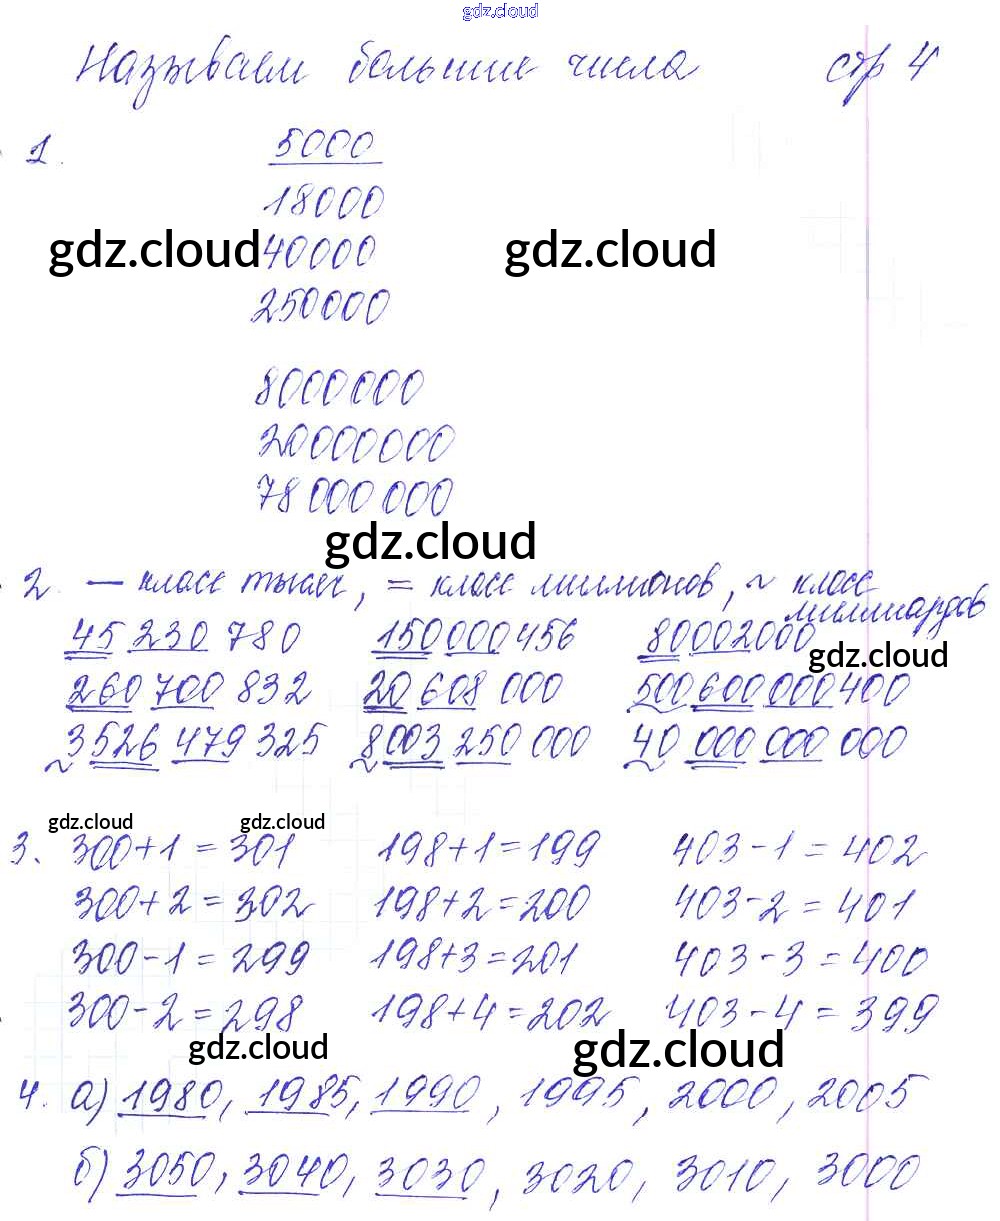 gdz.cloud
Называем большие числа стр 4
1. 5000
18000
gdz.cloud 40000 gdz.cloud
250000
8000000
20000000
78 000 000
gdz.cloud
2. — класс тысяч, = класс миллионов, ~ класс миллиардов
45 230 780 150 000 456 80002000
gdz.cloud
260 700 832 20 608 000 500 600 000 400
3526 479 325 8003 250 000 40 000 000 000
gdz.cloud gdz.cloud
3. 300+1=301 198+1=199 403-1=402
300+2=302 198+2=200 403-2=401
300-1=299 198+3=201 403-3=400
300-2=298 198+4=202 403-4=399
gdz.cloud gdz.cloud
4. а) 1980, 1985, 1990, 1995, 2000, 2005
б) 3050, 3040, 3030, 3020, 3010, 3000